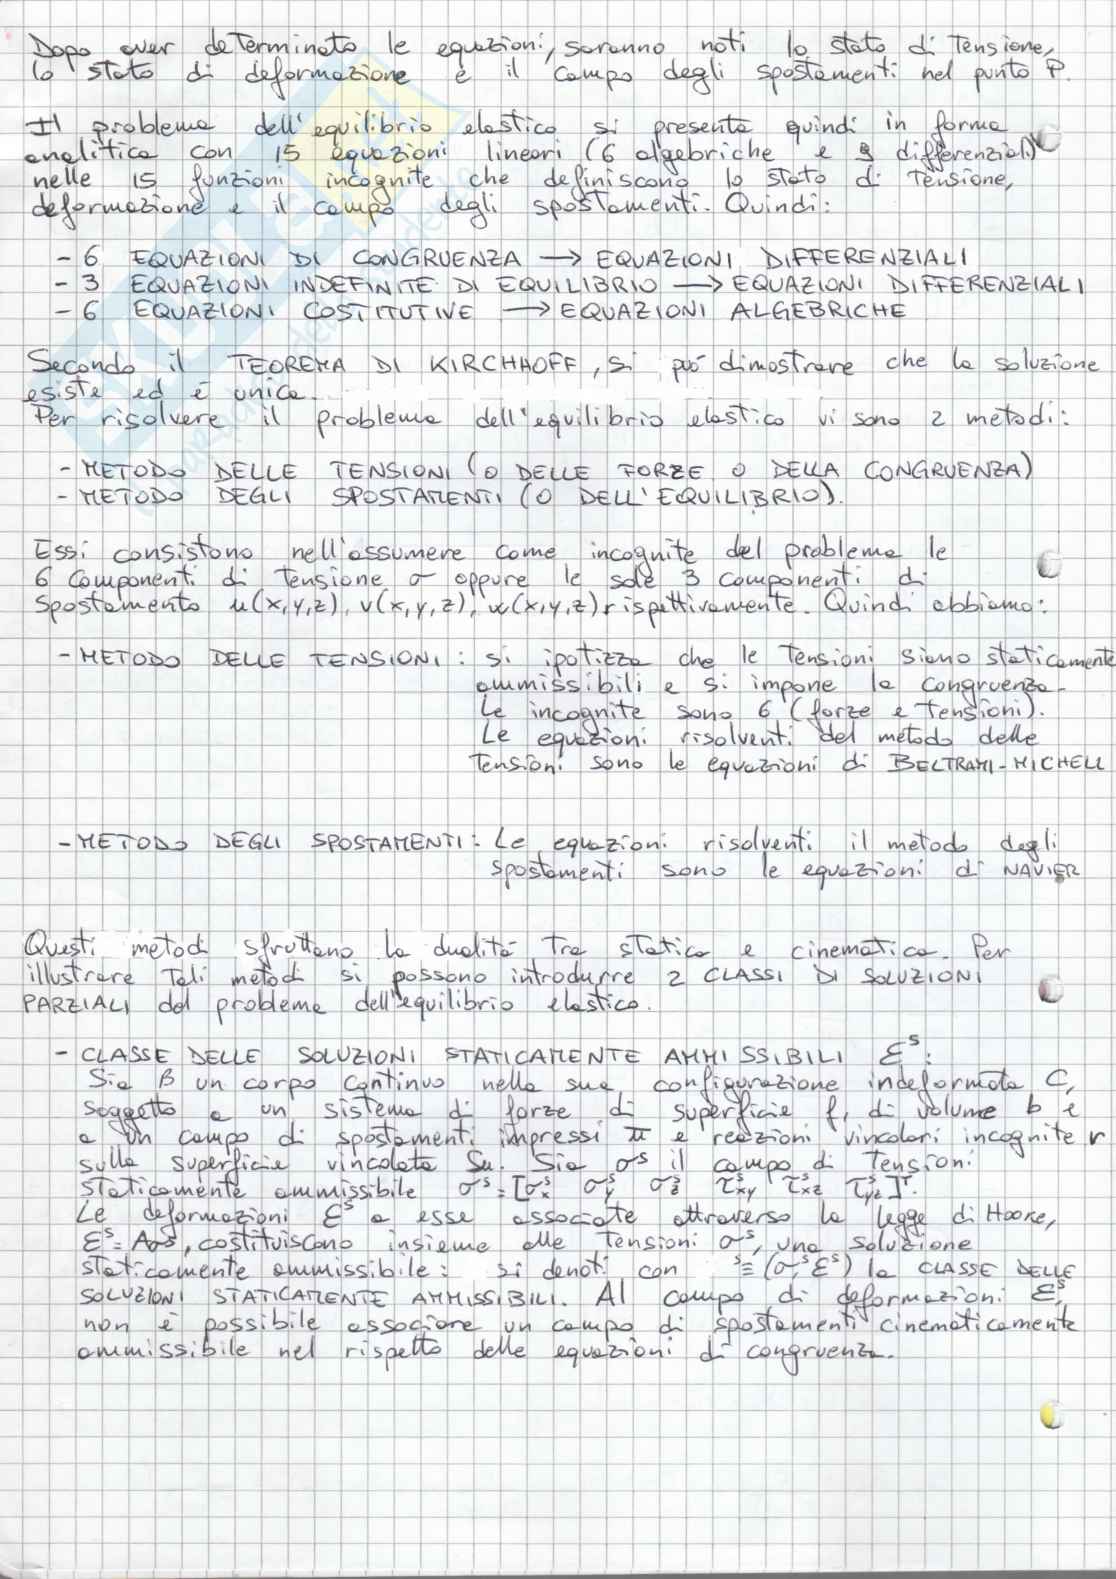 Dopo aver determinato le equazioni, saranno noti lo stato di tensione,
lo stato di deformazione e il campo degli spostamenti nel punto P.
Il problema dell'equilibrio elastico si presenta quindi in forma
analitica con 15 equazioni lineari (6 algebriche e 9 differenziali)
nelle 15 funzioni incognite che definiscono lo stato di tensione,
deformazione e il campo degli spostamenti. Quindi:
- 6 EQUAZIONI DI CONGRUENZA → EQUAZIONI DIFFERENZIALI
- 3 EQUAZIONI INDEFINITE DI EQUILIBRIO → EQUAZIONI DIFFERENZIALI
- 6 EQUAZIONI COSTITUTIVE → EQUAZIONI ALGEBRICHE
Secondo il TEOREMA DI KIRCHHOFF, si può dimostrare che la soluzione
esiste ed è unica.
Per risolvere il problema dell'equilibrio elastico vi sono 2 metodi:
- METODO DELLE TENSIONI (O DELLE FORZE O DELLA CONGRUENZA)
- METODO DEGLI SPOSTAMENTI (O DELL'EQUILIBRIO).
Essi consistono nell'assumere come incognite del problema le
6 componenti di tensione σ oppure le sole 3 componenti di
spostamento u(x,y,z), v(x,y,z), w(x,y,z) rispettivamente. Quindi abbiamo:
- METODO DELLE TENSIONI: si ipotizza che le tensioni siano staticamente
ammissibili e si impone la congruenza.
Le incognite sono 6 (forze e tensioni).
Le equazioni risolventi del metodo delle
tensioni sono le equazioni di BELTRAMI-MICHELL
- METODO DEGLI SPOSTAMENTI: Le equazioni risolventi il metodo degli
spostamenti sono le equazioni di NAVIER
Questi metodi sfruttano la dualità tra statica e cinematica. Per
illustrare tali metodi si possono introdurre 2 CLASSI DI SOLUZIONI
PARZIALI del problema dell'equilibrio elastico.
- CLASSE DELLE SOLUZIONI STATICAMENTE AMMISSIBILI Ɛˢ:
Sia B un corpo continuo nella sua configurazione indeformata C,
soggetto a un sistema di forze di superficie f, di volume b e
a un campo di spostamenti impressi ū e reazioni vincolari incognite r
sulla superficie vincolata Su. Sia σˢ il campo di tensioni
staticamente ammissibile σˢ=[σˢx σˢy σˢz τˢxy τˢxz τˢyz]ᵀ.
Le deformazioni Ɛˢ a esse associate attraverso la legge di Hooke,
Ɛˢ=Aσˢ, costituiscono insieme alle tensioni σˢ, una soluzione
staticamente ammissibile: si denoti con ˢ≡(σˢ,Ɛˢ) la CLASSE DELLE
SOLUZIONI STATICAMENTE AMMISSIBILI. Al campo di deformazioni Ɛˢ,
non è possibile associare un campo di spostamenti cinematicamente
ammissibile nel rispetto delle equazioni di congruenza.